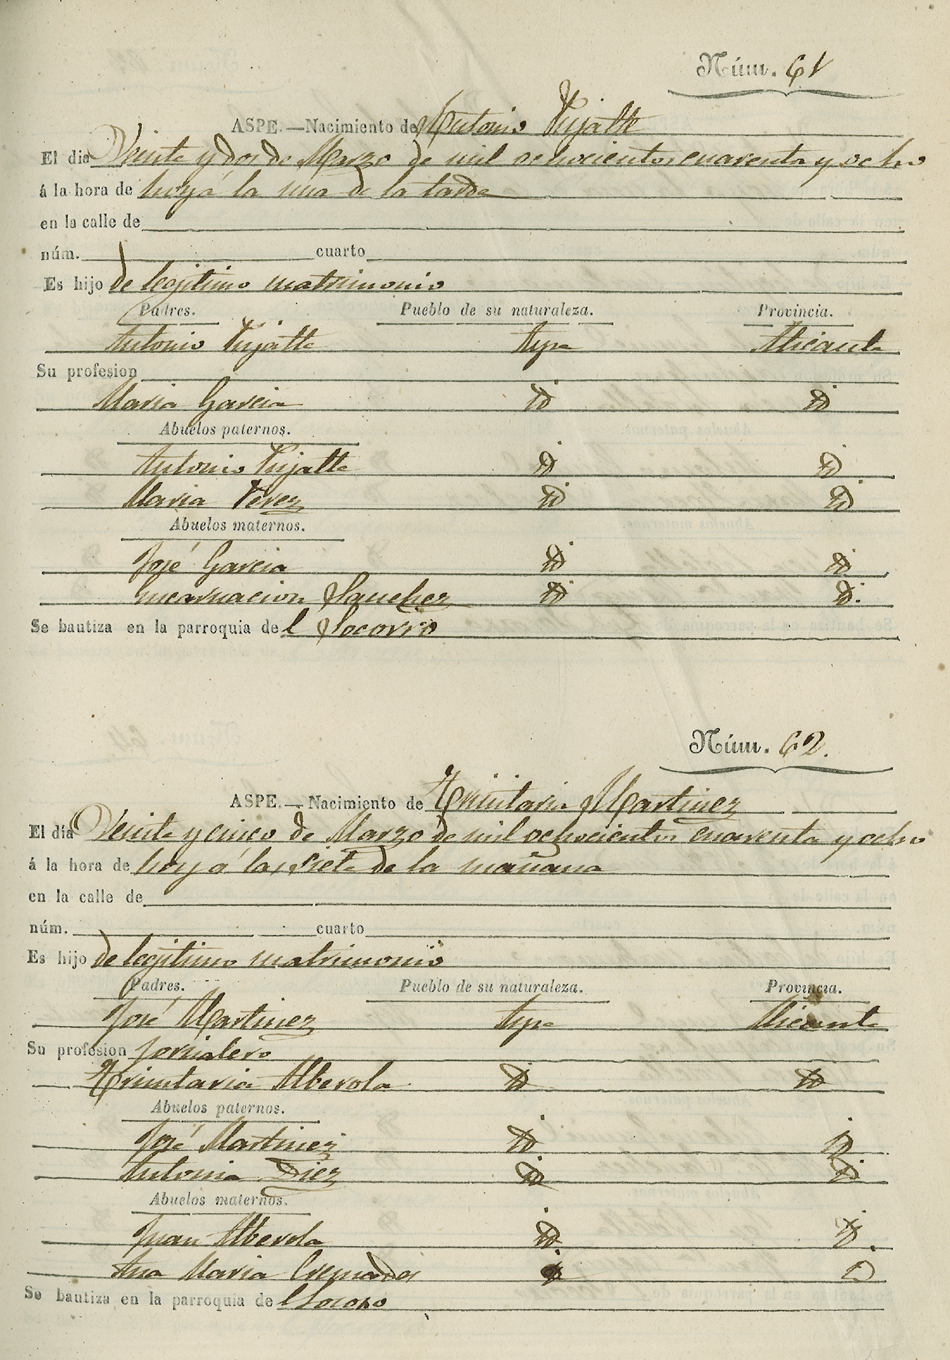 Núm. 61
ASPE.—Nacimiento de Antonio Pujalte
El dia Veinte y dos de Marzo de mil ochocientos cuarenta y ocho
á la hora de hoy á la una de la tarde
en la calle de
núm. cuarto
Es hijo de legitimo matrimonio
Padres. Pueblo de su naturaleza. Provincia.
Antonio Pujalte Aspe Alicante
Su profesion
Maria Garcia id id
Abuelos paternos.
Antonio Pujalte id id
Maria Perez id id
Abuelos maternos.
José Garcia id id
Encarnacion Sanchez id id.
Se bautiza en la parroquia del Socorro
Núm. 62.
ASPE.—Nacimiento de Trinitaria Martinez
El día Veinte y cinco de Marzo de mil ochocientos cuarenta y ocho
á la hora de hoy á las siete de la mañana
en la calle de
núm. cuarto
Es hijo de legitimo matrimonio
Padres. Pueblo de su naturaleza. Provincia.
José Martinez Aspe Alicante
Su profesion jornalero
Trinitaria Alberola id id
Abuelos paternos.
José Martinez id id
Antonia Diez id id
Abuelos maternos.
Juan Alberola id id.
Ana Maria Cremades
Se bautiza en la parroquia del Socorro